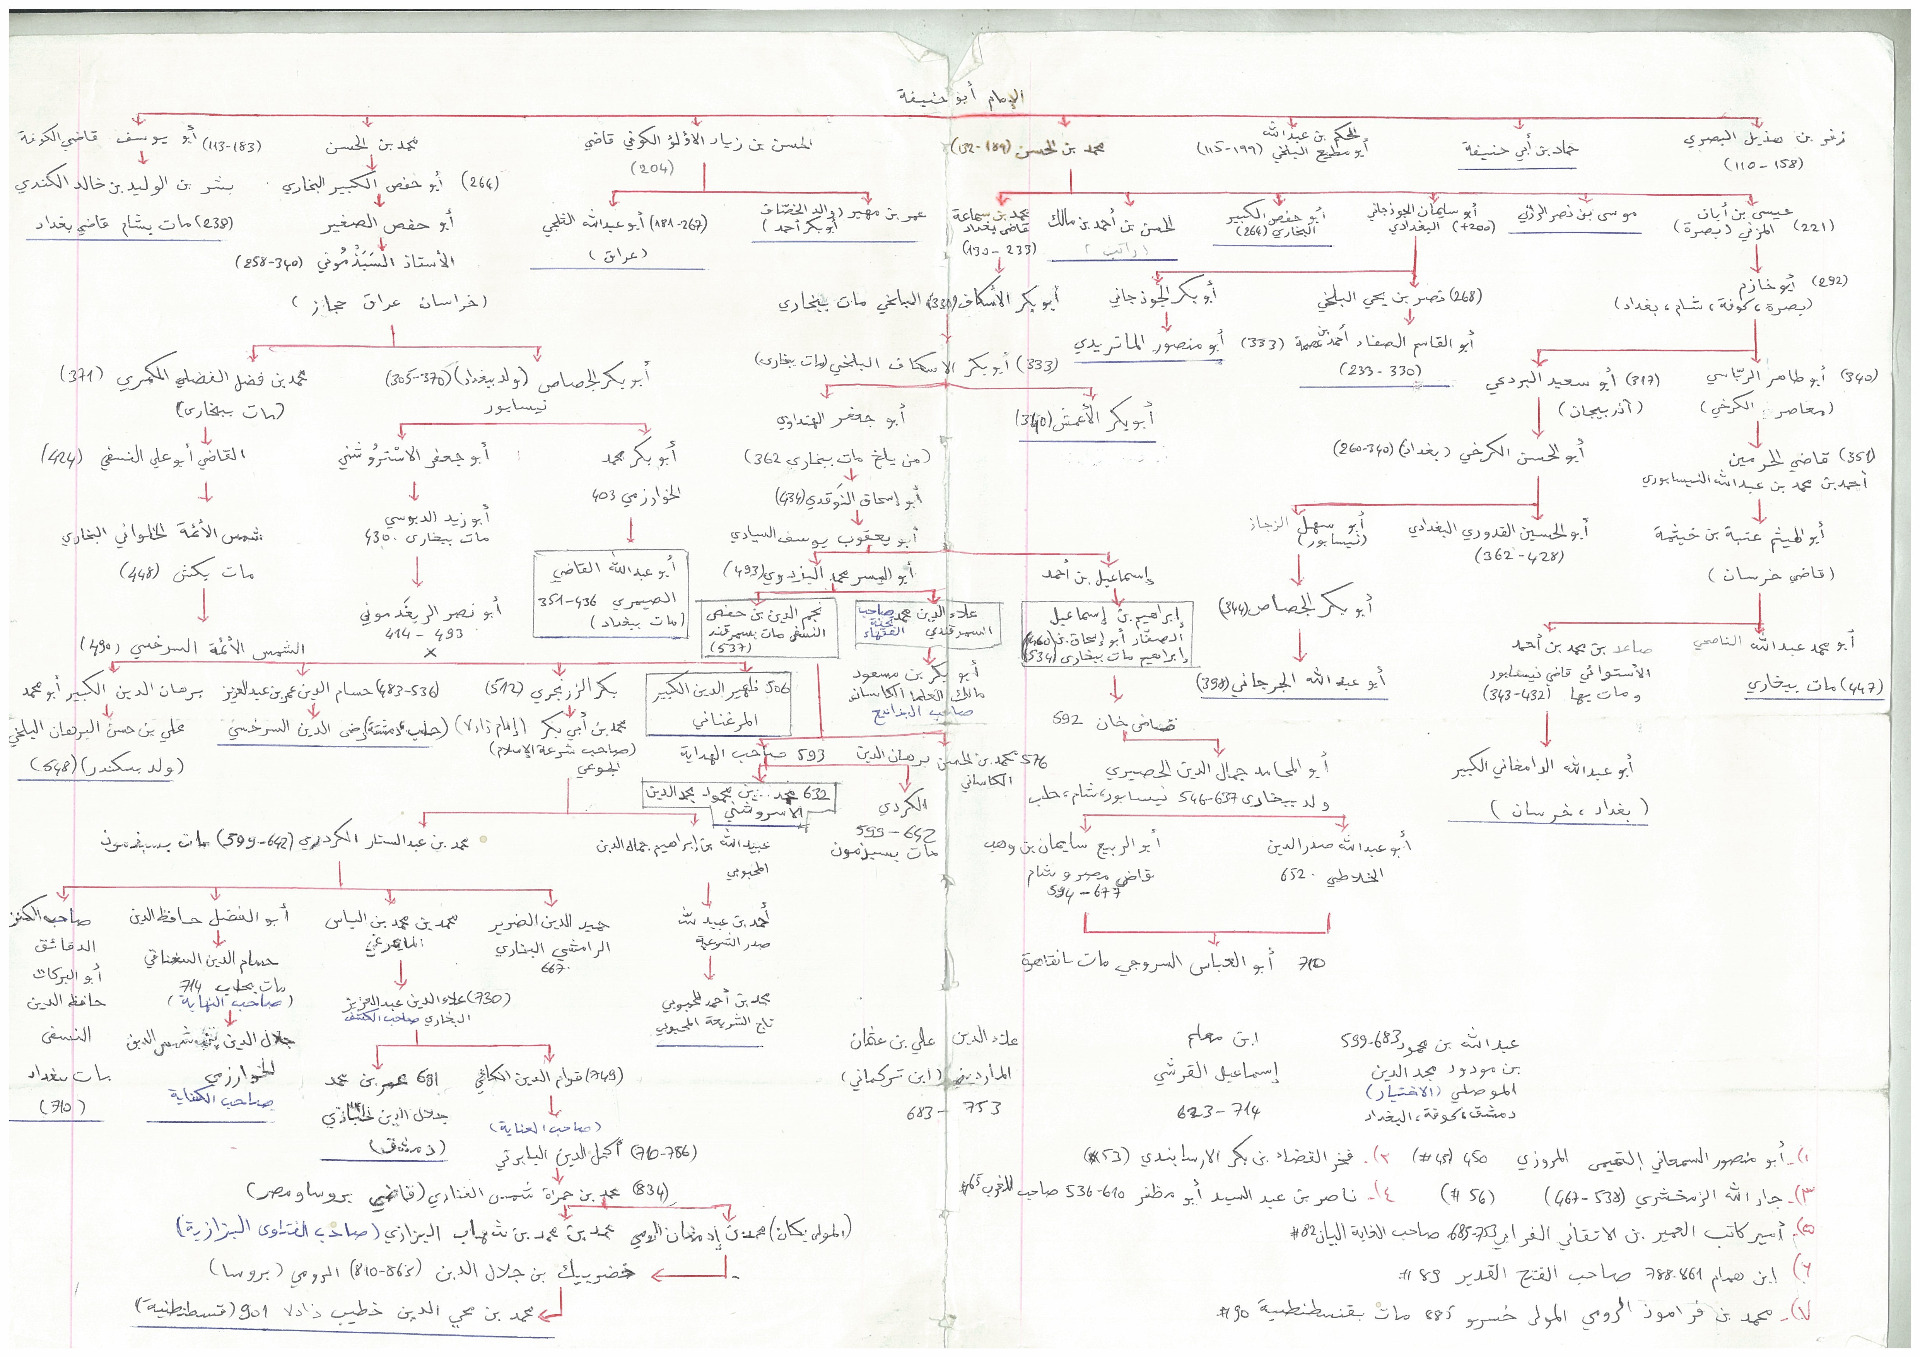 الإمام أبو حنيفة
زفر بن هذيل البصري
(110-158)
حماد بن أبي حنيفة
الحكم بن عبدالله
أبو مطيع البلخي (199-115)
محمد بن الحسن (189-132)
الحسن بن زياد الاؤلؤ الكوفي قاضي
(204)
محمد بن الحسن
أبو يوسف قاضي الكوفة (113-183)
عيسى بن أبان (221)
المزني (بصرة)
موسى بن نصر الرزي
أبو سليمان الجوزجاني
البغدادي (200+)
أبو حفص الكبير
البخاري (264)
الحسن بن أحمد بن مالك
محمد بن سماعة
قاضي بغداد
(130-233)
عمر بن مهير (والد الخصاف
أبو بكر أحمد)
أبو عبدالله الثلجي (181-267)
(عراق)
أبو حفص الكبير البخاري (264)
بشر بن الوليد بن خالد الكندي
أبو حفص الصغير
(238) مات بشام قاضي بغداد
الأستاذ السَبَذْمُوني (258-340)
(خراسان عراق حجاز)
أبو خازم (292)
(بصرة، كوفة، شام، بغداد)
نصر بن يحي البلخي (268)
أبو بكر الجوزجاني
أبو بكر الأسكاف (330) البلخي مات ببخاري
أبو القاسم الصفاد أحمد بن عصمة (333)
(233-330)
أبو منصور الماتريدي
أبو بكر الاسكاف البلخي (مات بخارى) (333)
أبو طاهر الربّاسي (340)
(معاصر الكرخي)
أبو سعيد البردعي (317)
(آذربيجان)
أبو بكر الأعمش (340)
أبو جعفر الهنداوي
(من بلخ مات ببخاري 362)
أبو بكر الجصاص (ولد ببغداد) (370-305)
نيسابور
محمد بن فضل الفضلي الكمري (371)
(مات ببخارى)
قاضي الحرمين (351)
أحمد بن محمد بن عبدالله النيسابوري
أبو الحسن الكرخي (بغداد) (340-260)
أبو إسحاق النَوقدي (434)
أبو بكر محمد
الخوارزمي 403
أبو جعفر الاسْتَرُوشني
القاضي أبو علي النسفي (424)
أبو الهيثم عتبة بن خيثمة
(قاضي خرسان)
أبو الحسين القدوري البغدادي
(362-428)
أبو سهل الزجاج
(نيسابور)
أبو يعقوب يوسف السيادي
أبو زيد الدبوسي
مات ببخارى 430
شمس الأئمة الحلواني البخاري
مات بكش (448)
إسماعيل بن أحمد
أبو اليسر محمد البزدوي (493)
أبو عبدالله القاضي
الصيمري 436-351
(مات ببغداد)
أبو بكر الجصاص (344)
إبراهيم بن إسماعيل
الصفار أبو إسحاق بن (460)
إبراهيم مات ببخارى (534)
علاء الدين محمد صاحب
السمرقندي تحفة الفقهاء
نجم الدين بن حفص
النسفي مات بسمرقند
(537)
أبو نصر الريغدموني
414 - 493
الشمس الأئمة السرخسي (490)
أبو محمد عبدالله الناصحي
(447) مات ببخاري
صاعد بن محمد بن أحمد
الأستوائي قاضي نيسابور
ومات بها (432-343)
أبو عبدالله الجرجاني (398)
أبو بكر بن مسعود
مالك العلما الكاساني
صاحب البدائع
506 ظهير الدين الكبير
المرغناني
بكر الزرنجري (512)
حسام الدين عمر بن عبدالعزيز (483-536)
برهان الدين الكبير أبو محمد
قاضي خان 592
محمد بن أبي بكر (إمام زادلا)
(صاحب شرعة الإسلام)
الجوغي
(حلب، دمشق) رضى الدين السرخسي
علي بن حسن البرهان البلخي
(ولد بسكندر) (548)
576 محمد بن الحسين برهان الدين
الكاساني
593 صاحب الهداية
أبو عبدالله الدامغاني الكبير
(بغداد، خرسان)
أبو المحامد جمال الدين الحصيري
ولد ببخارى 637-546 نيسابور، شام، حلب
632 محمد بن محمود مجد الدين
الاسروشني
الكردي
599-642
مات بسبزمون
أبو عبدالله صدر الدين
الخلاطي 652
أبو الربيع سليمان بن وهب
قاضي مصر و شام
594-677
عبيدالله بن إبراهيم جمال الدين
المحبوبي
محمد بن عبدالستار الكردري (642-599) مات بسبزمون
أحمد بن عبيدالله
صدر الشرعية
حميد الدين الضرير
الرامشي البخاري
667
محمد بن محمد بن الياس
المايمرغي
أبو الفضل حافظ الدين
صاحب الكنز
الدقائق
أبو البركات
حافظ الدين
النسفي
مات بغداد
(710)
710 أبو العباس السروجي مات بالقاهرة
حسام الدين السغناقي
مات بحلب 714
(صاحب النهاية)
محمد بن أحمد المحبوبي
تاج الشريعة المحبوبي
(730) علاء الدين عبدالعزيز
البخاري صاحب الكشف
جلال الدين بن شمس الدين
الخوارزمي
صاحب الكفاية
عبدالله بن محمود 683-599
بن مودود مجد الدين
الموصلي (الاختيار)
دمشق، كوفة، البغداد
ابن معلم
إسماعيل القرشي
623-714
علاء الدين علي بن عثمان
المارديني (ابن تركماني)
683 - 753
(749) قوام الدين الكاكي
691 عمر بن محمد
جلال الدين خبازي
(دمشق)
(صاحب العناية)
(710-786) أكمل الدين البابرتي
(834) محمد بن حمزة شمس الفناري (قاضي بروسا ومصر)
(المولى يكان) محمد بن أرمغان الرومي
محمد بن محمد بن شهاب البزازي (صاحب الفتاوى البزازية)
خضربيك بن جلال الدين (810-863) الرومي (بروسا)
محمد بن محي الدين خطيب زادلا 901 (قسطنطنية)
١)- أبو منصور السمعاني التميمي المروزي 450 (45#)
٢)- فخر القضاء بن بكر الارسابندي (53#)
٣)- جار الله الزمخشري (538-467) (56#)
٤)- ناصر بن عبد السيد أبو مظفر 610-536 صاحب المغرب 65#
٥)- أمير كاتب العمير بن الاتقاني الفرابي 753-685 صاحب الغاية البيان 82#
٦) ابن همام 861-788 صاحب الفتح القدير 89#
٧)- محمد بن فراموز الرومي المولى خسرو 885 مات بقسطنطنية 90#